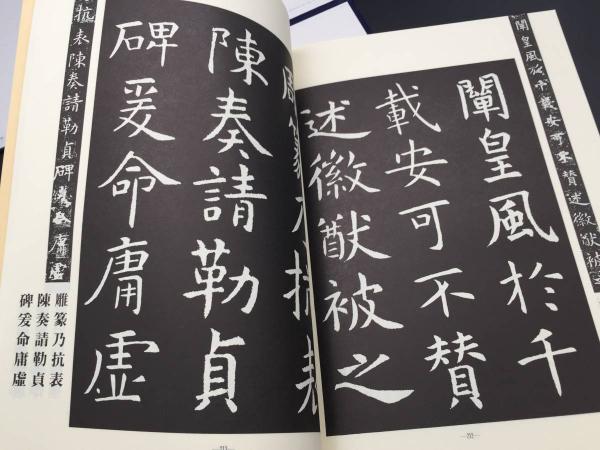 闡皇風於千載安可不贊述徽猷被
闡皇風於千
載安可不贊
述徽猷被之
雕篆乃抗表
陳奏請勒貞
碑爰命庸虛
抗表陳奏請勒貞碑爰命庸虛
雕篆乃抗表
陳奏請勒貞
碑爰命庸虛